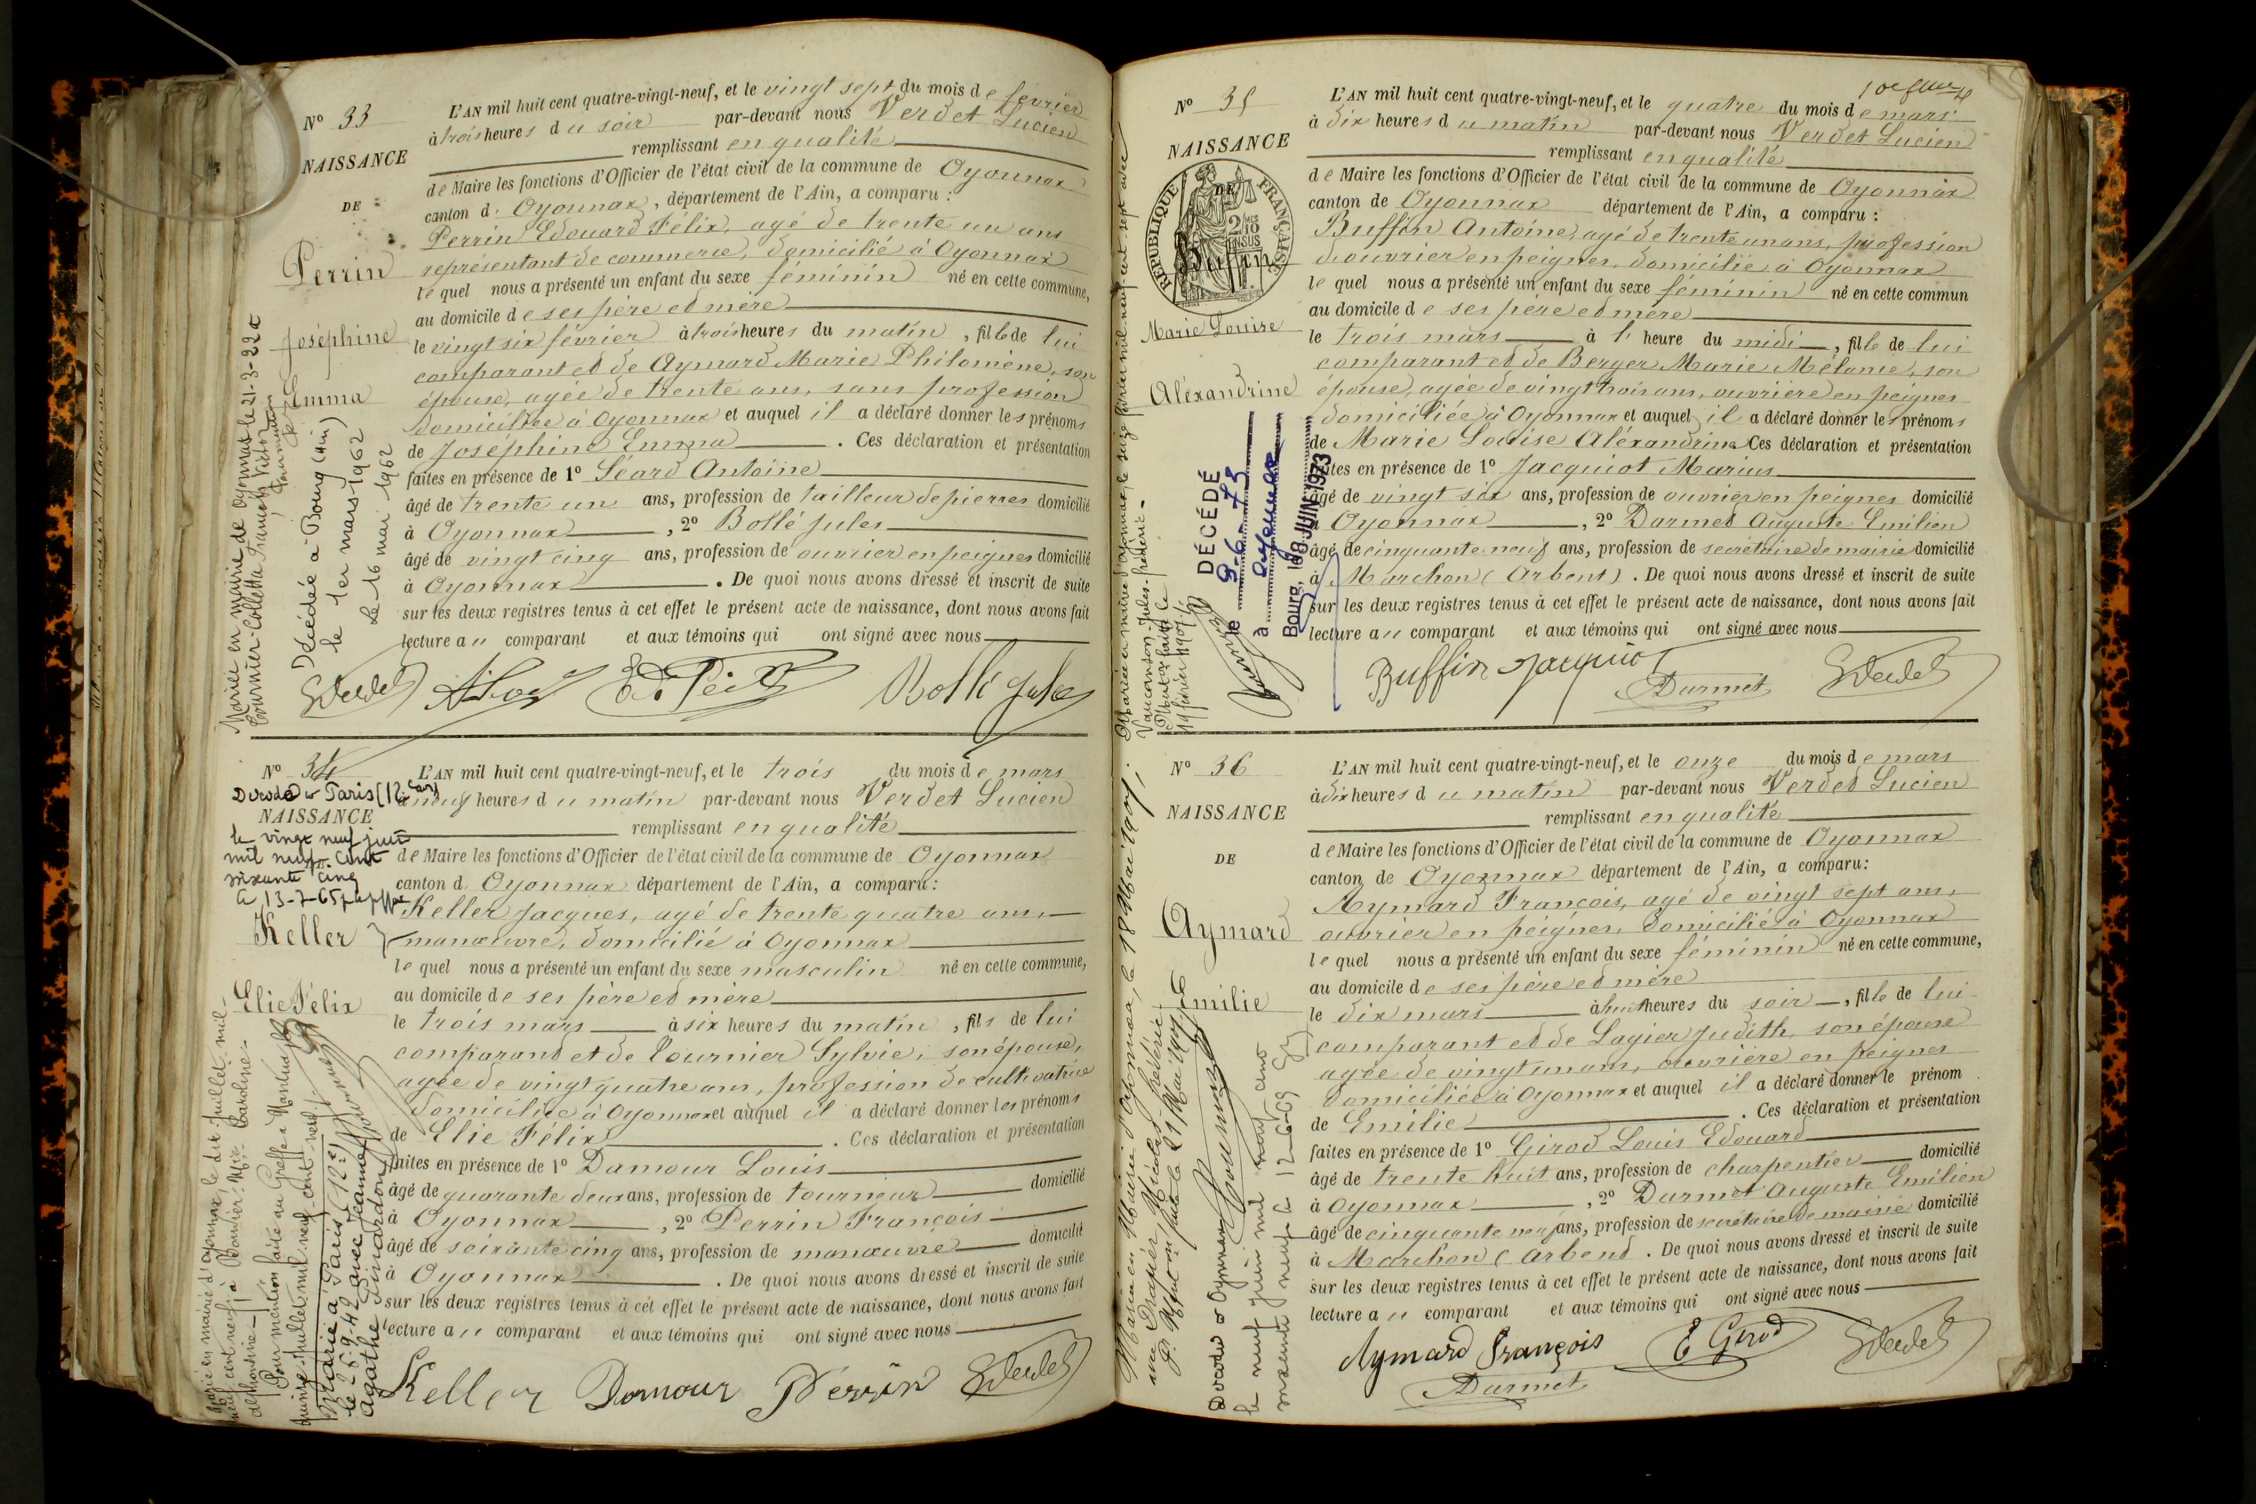 N° 33
NAISSANCE
DE
Perrin
Joséphine
Emma
Mariée en mairie de Oyonnax le 21-3-22 à
Tournier-Colletta François Victor
Décédée à Bourg (Ain)
le 1er mars 1962
Le 16 mai 1962
L'AN mil huit cent quatre-vingt-neuf, et le vingt sept du mois de février
à trois heures du soir par-devant nous Verdet Lucien
remplissant en qualité
de Maire les fonctions d'Officier de l'état civil de la commune de Oyonnax
canton d. Oyonnax, département de l'Ain, a comparu :
Perrin Edouard Félix, agé de trente un ans
représentant de commerce, domicilié à Oyonnax
lequel nous a présenté un enfant du sexe féminin né en cette commune,
au domicile de ses père et mère
le vingt six février à trois heures du matin, fille de lui
comparant et de Aymard Marie Philomène, son
épouse, agée de trente ans, sans profession
domiciliée à Oyonnax et auquel il a déclaré donner les prénoms
de Joséphine Emma . Ces déclaration et présentation
faites en présence de 1° Séard Antoine
âgé de trente un ans, profession de tailleur de pierres domicilié
à Oyonnax , 2° Bollé Jules
âgé de vingt cinq ans, profession de ouvrier en peignes domicilié
à Oyonnax . De quoi nous avons dressé et inscrit de suite
sur les deux registres tenus à cet effet le présent acte de naissance, dont nous avons fait
lecture au comparant et aux témoins qui ont signé avec nous
Bollé Jules
N° 34
Décédé à Paris (12e)
NAISSANCE
le vingt neuf juin
mil neuf cent
soixante cinq
Le 13-7-65
Keller
Elie Félix
Marié en mairie d'Oyonnax le dix juillet mil
neuf cent neuf à Bonnier Mie Caroline
Pour mention faite au Greffe à Nantua le
quinze juillet mil neuf cent neuf
Marié à Paris (12e)
le 26.9.42 avec Jeanne
Agathe Sinardon
L'AN mil huit cent quatre-vingt-neuf, et le trois du mois de mars
à neuf heures du matin par-devant nous Verdet Lucien
remplissant en qualité
de Maire les fonctions d'Officier de l'état civil de la commune de Oyonnax
canton d. Oyonnax département de l'Ain, a comparu :
Keller Jacques, agé de trente quatre ans,
manœuvre, domicilié à Oyonnax
lequel nous a présenté un enfant du sexe masculin né en cette commune,
au domicile de ses père et mère
le trois mars à six heures du matin, fils de lui
comparant et de Tournier Sylvie, son épouse,
agée de vingt quatre ans, profession de cultivatrice
domiciliée à Oyonnax et auquel il a déclaré donner les prénoms
de Elie Félix . Ces déclaration et présentation
faites en présence de 1° Damour Louis
âgé de quarante deux ans, profession de tourneur domicilié
à Oyonnax , 2° Perrin François
âgé de soixante cinq ans, profession de manœuvre domicilié
à Oyonnax . De quoi nous avons dressé et inscrit de suite
sur les deux registres tenus à cet effet le présent acte de naissance, dont nous avons fait
lecture au comparant et aux témoins qui ont signé avec nous
Keller Damour Perrin
N° 35
NAISSANCE
RÉPUBLIQUE FRANÇAISE
DE
Buffin
Marie Louise
Aléxandrine
Mariée en mairie d'Oyonnax le seize février mil neuf cent sept avec
Vaucanson Jules Frédéric
DÉCÉDÉ
le 9-6-73
à Oyonnax
Bourg, le 18 JUIN 1973
L'AN mil huit cent quatre-vingt-neuf, et le quatre du mois de mars
à dix heures du matin par-devant nous Verdet Lucien
remplissant en qualité
de Maire les fonctions d'Officier de l'état civil de la commune de Oyonnax
canton de Oyonnax département de l'Ain, a comparu :
Buffin Antoine, agé de trente un ans, profession
d'ouvrier en peignes, domicilié à Oyonnax
lequel nous a présenté un enfant du sexe féminin né en cette commun
au domicile de ses père et mère
le trois mars à 1 heure du midi, fille de lui
comparant et de Berger Marie Mélanie, son
épouse, agée de vingt trois ans, ouvrière en peignes
domiciliée à Oyonnax et auquel il a déclaré donner les prénoms
de Marie Louise Aléxandrine Ces déclaration et présentation
faites en présence de 1° Jacquiot Marius
âgé de vingt six ans, profession de ouvrier en peignes domicilié
à Oyonnax , 2° Darmet Auguste Emilien
âgé de cinquante neuf ans, profession de secrétaire de mairie domicilié
à Marchon (Arbent). De quoi nous avons dressé et inscrit de suite
sur les deux registres tenus à cet effet le présent acte de naissance, dont nous avons fait
lecture au comparant et aux témoins qui ont signé avec nous
Buffin Jacquiot
Darmet
N° 36
NAISSANCE
DE
Aymard
Emilie
Mariée en Mairie d'Oyonnax, le 18 Mai 1907,
avec Drapier, Nicolas Frédéric
Pr Mention faite le 21 Mai 1907
Décédée à Oyonnax
le neuf juin mil neuf cent
soixante neuf Le 12-6-69
L'AN mil huit cent quatre-vingt-neuf, et le onze du mois de mars
à dix heures du matin par-devant nous Verdet Lucien
remplissant en qualité
de Maire les fonctions d'Officier de l'état civil de la commune de Oyonnax
canton de Oyonnax département de l'Ain, a comparu :
Aymard François, agé de vingt sept ans,
ouvrier en peignes, domicilié à Oyonnax
lequel nous a présenté un enfant du sexe féminin né en cette commune,
au domicile de ses père et mère
le dix mars à huit heures du soir, fille de lui
comparant et de Lagier Judith, son épouse
agée de vingt un ans, ouvrière en peignes
domiciliée à Oyonnax et auquel il a déclaré donner le prénom
de Emilie . Ces déclaration et présentation
faites en présence de 1° Girod Louis Edouard
âgé de trente huit ans, profession de charpentier domicilié
à Oyonnax , 2° Darmet Auguste Emilien
âgé de cinquante neuf ans, profession de secrétaire de mairie domicilié
à Marchon (Arbent. De quoi nous avons dressé et inscrit de suite
sur les deux registres tenus à cet effet le présent acte de naissance, dont nous avons fait
lecture au comparant et aux témoins qui ont signé avec nous
Aymard François E Girod
Darmet